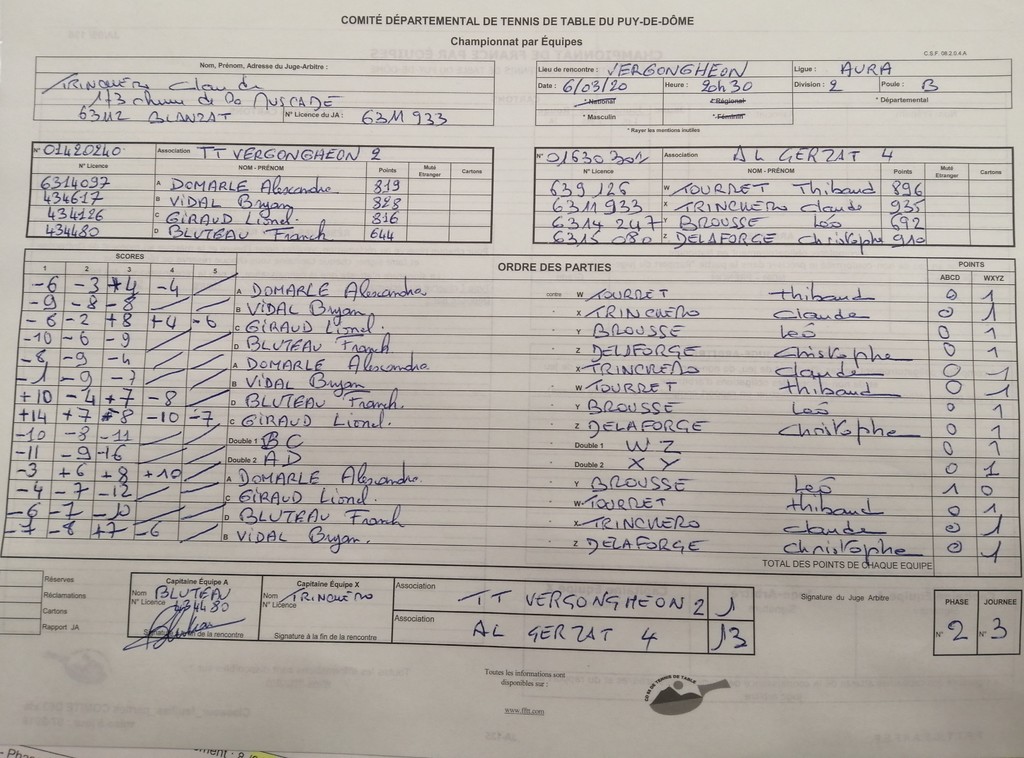 COMITÉ DÉPARTEMENTAL DE TENNIS DE TABLE DU PUY-DE-DÔME
Championnat par Équipes
C.S.F. 08.2.0.4.A
Nom, Prénom, Adresse du Juge-Arbitre :
TRINQUERO Claude
173 chemin de la MUSCADE
63112 BLANZAT N° Licence du JA : 6311 933
Lieu de rencontre : VERGONGHEON Ligue : AURA
Date : 6/03/20 Heure : 20h30 Division : 2 Poule : B
* National * Régional * Départemental
* Masculin * Féminin
* Rayer les mentions inutiles
N° 01420240 Association TT VERGONGHEON 2
N° Licence NOM - PRÉNOM Points Muté Etranger Cartons
6314097 A DOMARLE Alexandre 819
434617 B VIDAL Bryan 828
434126 C GIRAUD Lionel. 816
434480 D BLUTEAU Franck 644
N° 01630302 Association AL GERZAT 4
N° Licence NOM - PRÉNOM Points Muté Etranger Cartons
639 126 W TOURRET Thibaud 896
6311933 X TRINCHERO Claude 935
6314 247 Y BROUSSE Léo 692
6315 080 Z DELAFORGE Christophe 910
SCORES ORDRE DES PARTIES POINTS
1 2 3 4 5 ABCD WXYZ
-6 -3 +4 -4 A DOMARLE Alexandre contre W TOURRET Thibaud 0 1
-9 -8 -8 B VIDAL Bryan X TRINCHERO Claude 0 1
-8 -2 +8 +4 -6 C GIRAUD Lionel. Y BROUSSE Léo 0 1
-10 -6 -9 D BLUTEAU Franck. Z DELAFORGE Christophe 0 1
-8 -9 -4 A DOMARLE Alexandre X TRINCHERO Claude 0 1
-1 -9 -7 B VIDAL Bryan W TOURRET Thibaud 0 1
+10 -4 +7 -8 D BLUTEAU Franck. Y BROUSSE Léo 0 1
+14 +7 -8 -10 -7 C GIRAUD Lionel. Z DELAFORGE Christophe 0 1
-10 -8 -11 Double 1 BC Double 1 WZ 0 1
-11 -9 -16 Double 2 AD Double 2 XY 0 1
-3 +6 +8 +10 A DOMARLE Alexandre. Y BROUSSE Léo 1 0
-4 -7 -12 C GIRAUD Lionel. W TOURRET Thibaud 0 1
-6 -7 -10 D BLUTEAU Franck X TRINCHERO Claude 0 1
-7 -8 +7 -6 B VIDAL Bryan. Z DELAFORGE Christophe 0 1
TOTAL DES POINTS DE CHAQUE EQUIPE
Réserves
Réclamations
Cartons
Rapport JA
Capitaine Équipe A
Nom BLUTEAU
N° Licence 434480
Signature à la fin de la rencontre
Capitaine Équipe X
Nom TRINQUERO
N° Licence
Signature à la fin de la rencontre
Association TT VERGONGHEON 2 1
Association AL GERZAT 4 13
Signature du Juge Arbitre
PHASE JOURNEE
N° 2 N° 3
Toutes les informations sont
disponibles sur :
www.fftt.com